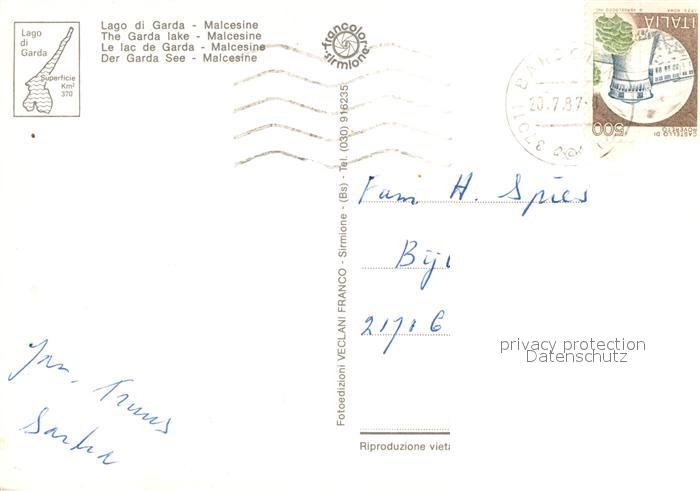 Lago
di
Garda
Superficie
Km²
370
Lago di Garda - Malcesine
The Garda lake - Malcesine
Le lac de Garda - Malcesine
Der Garda See - Malcesine
francolor
sirmione
ITALIA
500
CASTELLO DI
ROVERETO
37011
20.7.87
Fotoedizioni VECLANI FRANCO - Sirmione - (Bs) - Tel. (030) 916235
Fam. H. Spies
21716
privacy protection
Datenschutz
Riproduzione vieta